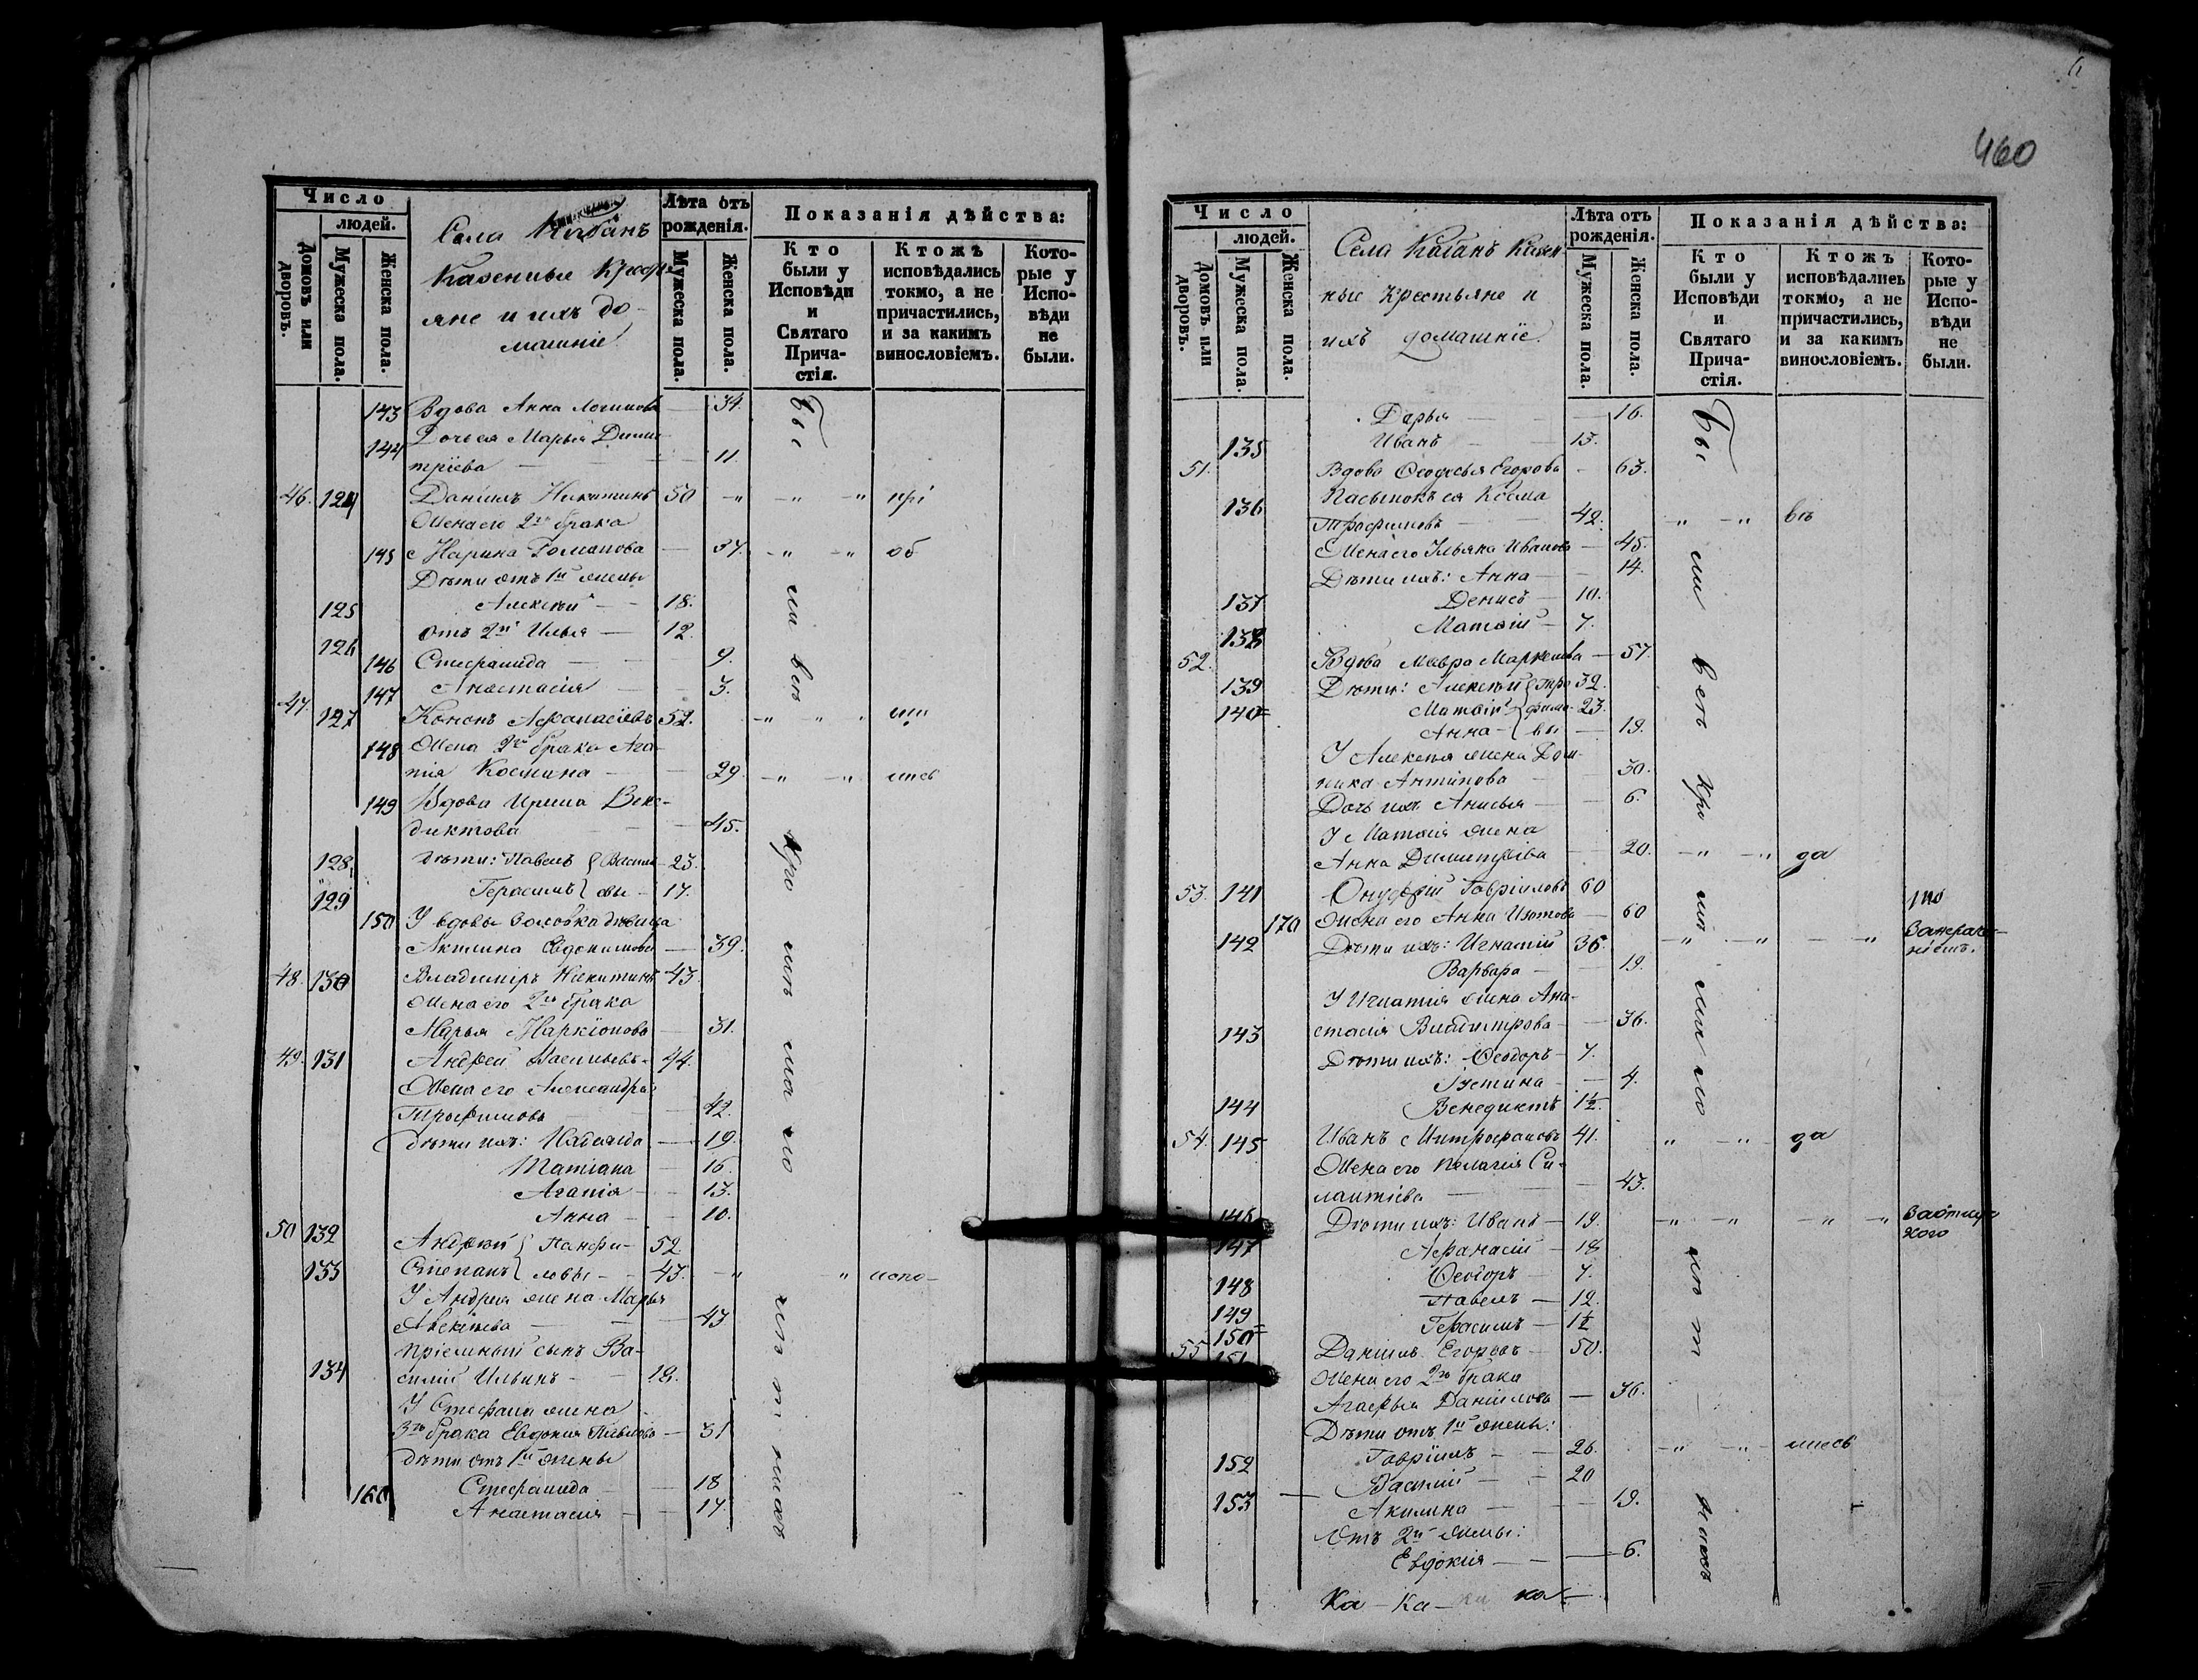 Число
людей.
Домовъ или дворовъ.
Мужеска пола.
Женска пола.
Села Кабанъ
Казенные Крестьяне и ихъ домашніе
Лѣта отъ рожденія.
Мужеска пола.
Женска пола.
Показанія дѣйства:
Кто были у Исповѣди и Святаго Причастія.
Ктожъ исповѣдались токмо, а не причастились, и за какимъ винословіемъ.
Которые у Исповѣди не были.
143 Вдова Анна Логинова — 34.
144 Дочь ея Марья Димитріева — 11.
46. 124 Даніилъ Никитинъ 50 — " — " — " при
Жена его 2го брака
145 Марина Романова — 37. — " — " об
Дѣти отъ 1й жены
125 Алексѣй — 18.
126 Отъ 2й Илья — 12.
146 Стефанида — 9.
147 Анастасія — 3.
47. 127 Кононъ Афанасіевъ 52. — " — "
148 Жена 2го брака Агапія Космина — 29. — " — " лись
149 Вдова Ирина Венедиктова — 45.
128 Дѣти: Павелъ } Василье- 23.
129 Герасимъ } вы — 17.
150 У вдовы золовка дѣвица
Акилина Евдокимова — 39.
48. 130 Владиміръ Никитинъ 43.
Жена его 2го брака
Марья Наркіонова — 31.
49. 131 Андрей Васильевъ 44.
Жена его Александра
Трофимова — 42.
Дѣти ихъ: Надежда — 19.
Татіана — 16.
Агапія — 13.
Анна — 10.
50 132 Андрей } Панфи- 52.
133 Степанъ } ловы — 43. — " — " испо-
У Андрея жена Марья
Алексѣева — 43
134 Пріемный сынъ Василій Ильинъ — 18.
У Стефана жена
3го брака Евдокия Павлова — 31
Дѣти отъ 1й жены
Стефанида — 18
160 Анастасия — 17.
Бы ли всѣ кро мѣ ма ло лѣт нихъ
460
Число
людей.
Домовъ или дворовъ.
Мужеска пола.
Женска пола.
Села Кабанъ Казенные Крестьяне и
ихъ домашніе.
Лѣта отъ рожденія.
Мужеска пола.
Женска пола.
Показанія дѣйства:
Кто были у Исповѣди и Святаго Причастія.
Ктожъ исповѣдались токмо, а не причастились, и за какимъ винословіемъ.
Которые у Исповѣди не были.
Дарья — 16.
135 Иванъ — 13.
51. Вдова Ѳеодосья Егорова — 63.
136 Пасынокъ ея Косма
Трофимовъ — 42. " — " вѣ
Жена его Ульяна Иванова — 45.
Дѣти ихъ: Анна — 14.
137 Денисъ — 10.
138 Матвій — 7.
52. Вдова Мавра Маркелова — 57.
139 Дѣти: Алексѣй } Тро 32.
140 Матвій } фимо- 23.
Анна } вы — 19.
У Алексѣя жена Домника Антипова — 30.
Дочь ихъ Анисья — 6.
У Матвія жена
Анна Димитріева — 20. — " — " да
53. 141 Онуфрій Гавріиловъ 60
170 Жена его Анна Изотова — 60
142 Дѣти ихъ: Игнатій 36. — " — " — "
Варвара — 19.
У Игнатія жена Анастасія Владимірова — 36.
143 Дѣти ихъ: Ѳеодоръ 7.
Устина — 4.
144 Венедиктъ 1½.
54. 145 Иванъ Митрофановъ 41. " — " да
Жена его Пелагія Силантіева — 43.
146 Дѣти ихъ: Иванъ — 19. — " — " — "
147 Афанасій — 18
148 Ѳеодоръ — 7.
149 Павелъ — 12.
150 Герасимъ — 1½
55 151 Даніилъ Егоровъ — 50.
Жена его 2го брака
Агафья Данилова — 36.
Дѣти отъ 1й жены:
152 Гавріилъ — 26. — " — " лись
153 Василій — 20
Акилина — 19.
Отъ 2й жены:
Евдокія — 6.
Бы ли всѣ кро мѣ ма ло лѣт нихъ
Ка — ка — ка ка —